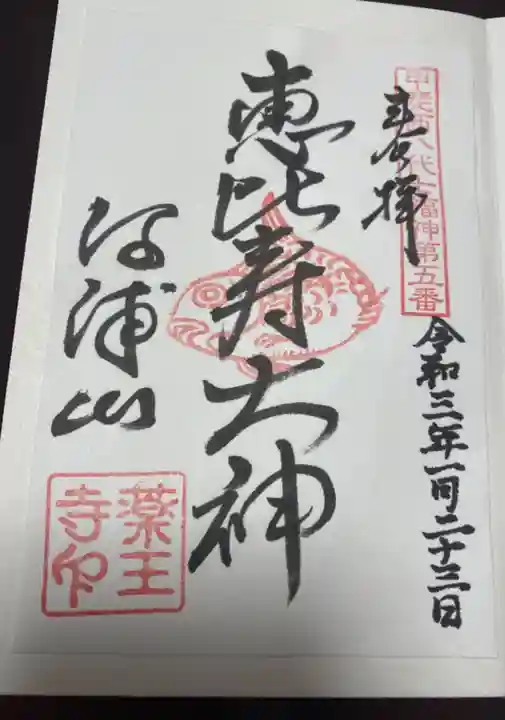 甲斐西八代七福神第五番
奉拝
令和三年一月二十三日
恵比寿大神
河浦山
薬王寺印